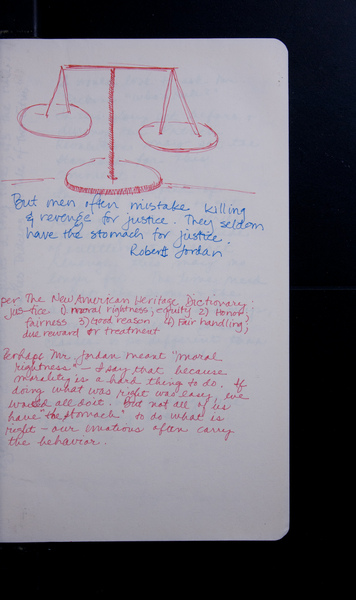 But men often mistake killing
& revenge for justice. They seldom
have the stomach for justice.
Robert Jordan
per The New American Heritage Dictionary:
jus·tice 1) moral rightness; equity 2) Honor,
fairness 3) Good reason 4) Fair handling;
due reward or treatment
Perhaps Mr. Jordan meant "moral
rightness" – I say that because
morality is a hard thing to do. If
doing what was right was easy, we
would all do it. But not all of us
have "the stomach" to do what is
right – our emotions often carry
the behavior.